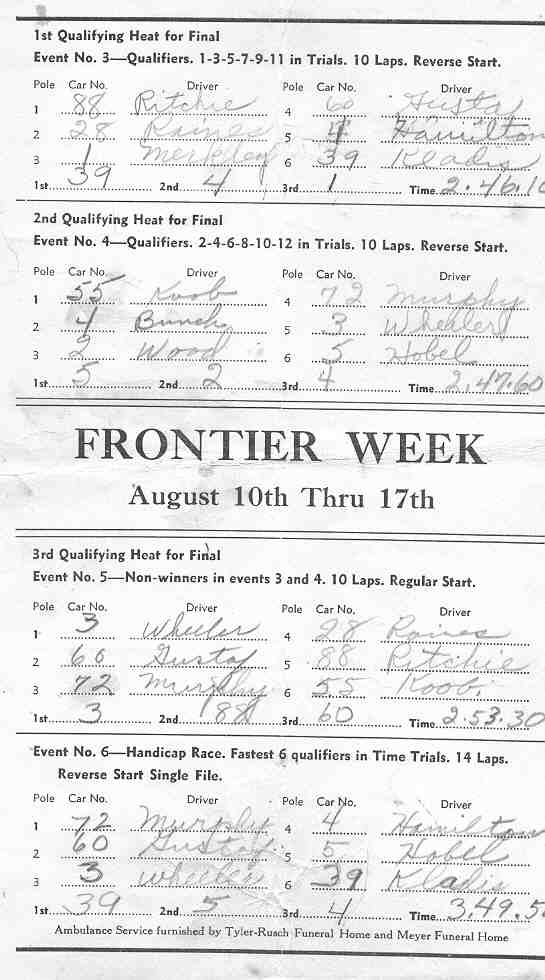 1st Qualifying Heat for Final
Event No. 3—Qualifiers. 1-3-5-7-9-11 in Trials. 10 Laps. Reverse Start.
Pole Car No. Driver Pole Car No. Driver
1 88 Ritchie 4 60 Gustaf
2 28 Raines 5 4 Hamilton
3 1 Merkley 6 39 Kladis
1st 39 2nd 4 3rd 1 Time 2.46.10
2nd Qualifying Heat for Final
Event No. 4—Qualifiers. 2-4-6-8-10-12 in Trials. 10 Laps. Reverse Start.
Pole Car No. Driver Pole Car No. Driver
1 55 Koob 4 72 Murphy
2 4 Bunch 5 3 Wheeler
3 2 Wood 6 5 Hobel
1st 5 2nd 2 3rd 4 Time 2.47.60
FRONTIER WEEK
August 10th Thru 17th
3rd Qualifying Heat for Final
Event No. 5—Non-winners in events 3 and 4. 10 Laps. Regular Start.
Pole Car No. Driver Pole Car No. Driver
1 3 Wheeler 4 28 Raines
2 60 Gustaf 5 88 Ritchie
3 72 Murphy 6 55 Koob
1st 3 2nd 88 3rd 60 Time 2.53.30
Event No. 6—Handicap Race. Fastest 6 qualifiers in Time Trials. 14 Laps.
Reverse Start Single File.
Pole Car No. Driver Pole Car No. Driver
1 72 Murphy 4 4 Hamilton
2 60 Gustaf 5 5 Hobel
3 3 Wheeler 6 39 Kladis
1st 39 2nd 5 3rd 4 Time 3.49.5
Ambulance Service furnished by Tyler-Rusch Funeral Home and Meyer Funeral Home